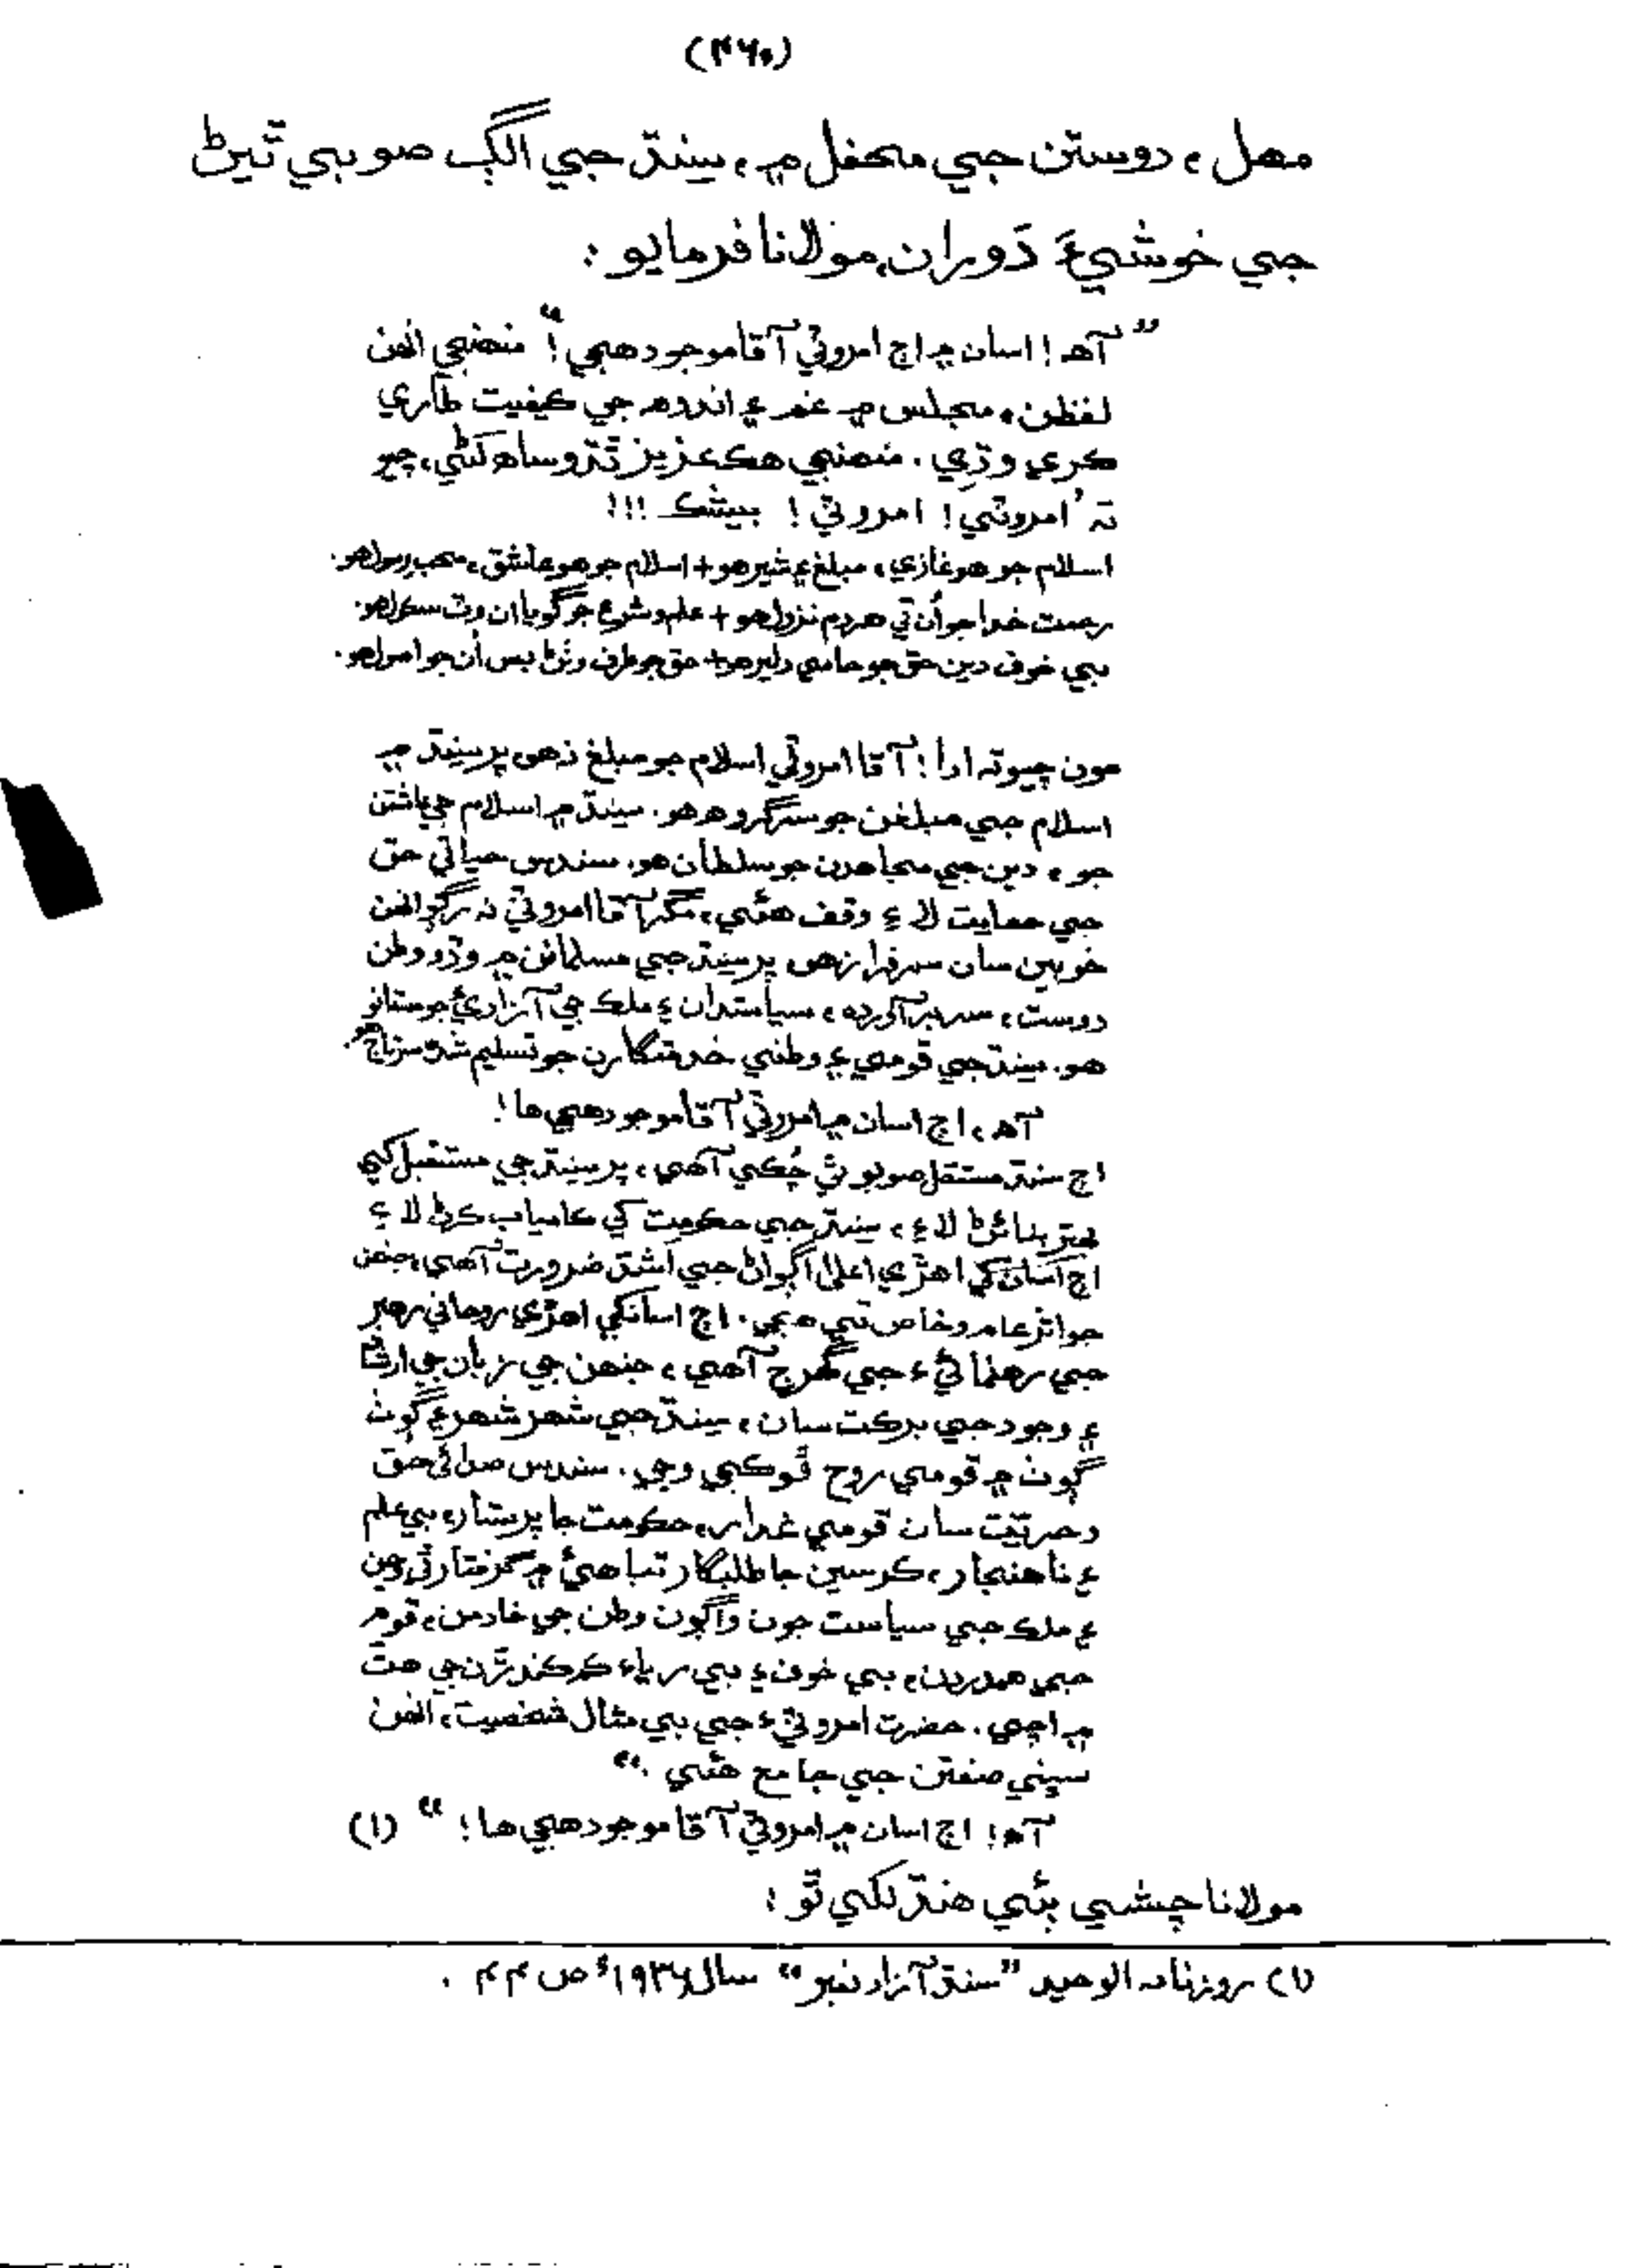 (۴۶۰)
مهل ۽ دوستن جي محفل ۾، سينڌ جي الڳ صوبي ٿيڻ
جي خوشيءَ دَوران، مولانا فرمايو :
” آھ ! اسان ۾ اڄ امروٽي آقا موجود هجي !“ منهنجي انهن
لفظن، مجلس ۾ غم ۽ اندوھ جي ڪيفيت طاري
ڪري وڌي. منهنجي هڪ عزيز ٿڌو ساھ کڻي، چيو
تہ ’امروٽي ! امروٽي ! بيشڪ !!!
اسلام جو هو غازي، مبلغ ۽ شير هو + اسلام جو هو عاشق، محب رسول هو.
رحمت خدا جو اُن تي هردم نزول هو + علم و شرع جو گويا ان وٽ سڪول هو.
بي خوف دين حق جو حامي دلير هو + حق جو طرف وٺڻ بس اُن جو اصول هو.
مون چيو تہ ادا ! آقا امروٽي اسلام جو مبلغ نہ هو پر سينڌ ۾
اسلام جي مبلغن جو سرگروھ هو. سينڌ ۾ اسلام جي عاشقن
جو ۽ دين جي مجاهدن جو سلطان هو. سندس حياتي حق
جي حمايت لاءِ وقف هئي، مگر آقا امروٽي نہ رڳو انهن
خوبين سان سرفراز هو پر سينڌ جي مسلمانن ۾ وڏو وطن
دوست، سربرآورده، سياستدان ۽ ملڪ جي آزاديءَ جو مستانو
هو. سينڌ جي قومي ۽ وطني خدمتگارن جو تسليم شده سرتاج هو.
آھ، اڄ اسان ۾ امروٽي آقا موجود هجي ها !
اڄ سنڌ مستقل صوبو ٿي چُڪي آهي، پر سينڌ جي مستقبل کي
بهتر بنائڻ لاءِ، سينڌ جي حڪومت کي ڪامياب ڪرڻ لاءِ
اڄ اسان کي اهڙي اعليٰ اڳواڻ جي اشد ضرورت آهي، جنهن
جو اثر عام و خاص تي هجي. اڄ اسانکي اهڙي روحاني رهبر
جي رهنمائيءَ جي گهرج آهي، جنهن جي زبان جي ارشاد
۽ وجود جي برڪت سان، سينڌ جي شهر شهر ۽ ڳوٺ
ڳوٺ ۾ قومي روح ڦوڪجي وڃي. سندس صدائي حق
و حريت سان قومي غدار، حڪومت جا پرستار، بي علم
۽ ناهنجار، ڪرسين جا طلبگار تباهيءَ ۾ گرفتار ٿي وڃن
۽ ملڪ جي سياست جون واڳون وطن جي خادمن، قوم
جي همدردن، بي خوف ۽ بي رياءِ ڪم ڪندڙن جي هٿ
۾ اچي. حضرت امروٽيءَ جي بي مثال شخصيت، انهن
سڀني صفتن جي جامع هئي .“
آھ! اڄ اسان ۾ امروٽي آقا موجود هجي ها ! “ (۱)
مولانا چشتي ٻئي هنڌ لکي ٿو :
(۱) روزنامہ الوحيد ”سنڌ آزاد نمبر“ سال ۱۹۳۶ع ص ۴۴ .